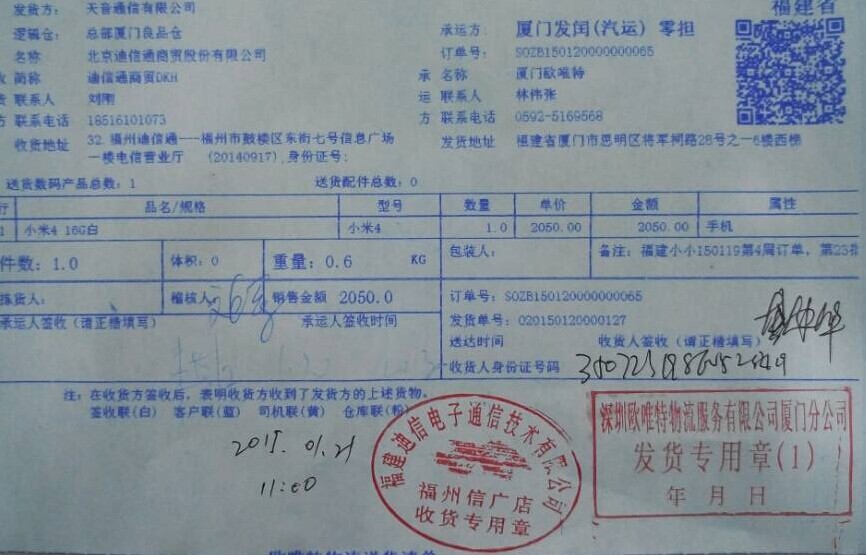 福建省
发货方: 天音通信有限公司
承运方: 厦门发闰(汽运) 零担
逻辑仓: 总部厦门良品仓
订单号: SOZB150120000000065
名称 北京迪信通商贸股份有限公司
承 名称 厦门欧唯特
简称 迪信通商贸DKH
运 联系人 林伟张
联系人 刘刚
方 联系电话 0592-5169568
方 联系电话 18516101073
发货地址 福建省厦门市思明区将军祠路28号之一6楼西梯
收货地址 32.福州迪信通---福州市鼓楼区东街七号信息广场
一楼电信营业厅 (20140917),身份证号:
送货数码产品总数: 1 送货配件总数: 0
行 品名/规格 型号 数量 单价 金额 属性
1 小米4 16G白 小米4 1.0 2050.00 2050.00 手机
件数: 1.0 体积: 0 重量: 0.6 KG 包装人: 备注: 福建小小150119第4周订单, 第23批
拣货人: 稽核人: 销售金额 2050.0 订单号: SOZB150120000000065
承运人签收 (请正楷填写) 承运人签收时间 发货单号: 020150120000127
送达时间 收货人签收 (请正楷填写)
收货人身份证号码
注: 在收货方签收后, 表明收货方收到了发货方的上述货物。
签收联(白) 客户联(蓝) 司机联(黄) 仓库联(粉)
2015.01.21
11:00
福建迪信电子通信技术有限公司
福州信广店
收货专用章
深圳欧唯特物流服务有限公司厦门分公司
发货专用章(1)
年 月 日